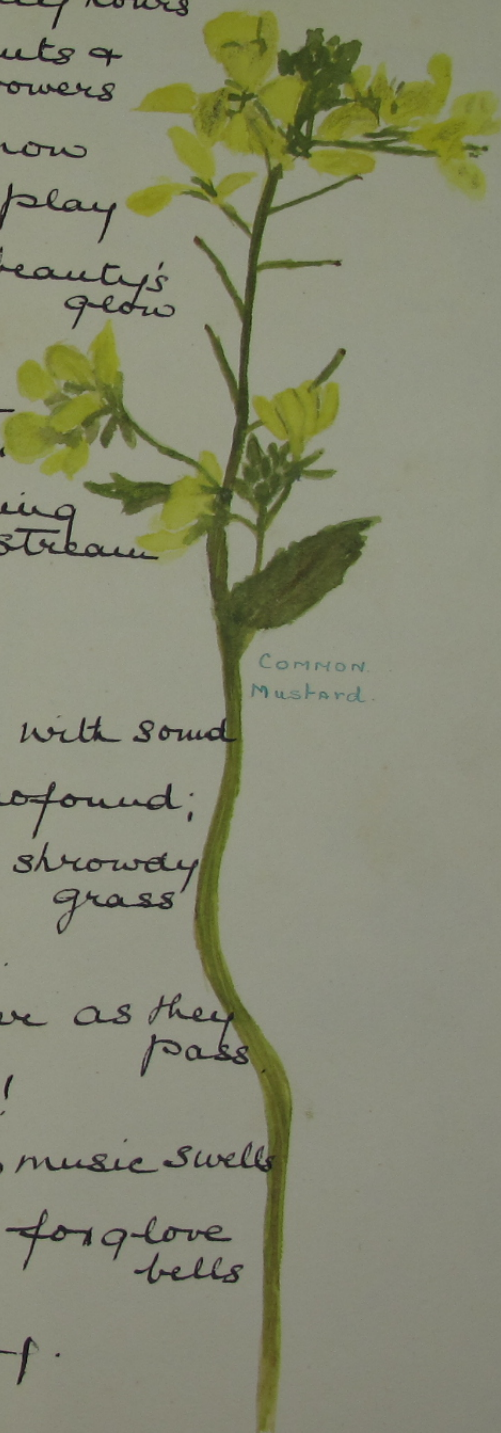 hours
&
owers
now
play
beauty's
glow
stream
Common
Mustard.
with sound
ofound;
shrowdy
grass
as they
pass
!
music swells
foxglove
bells